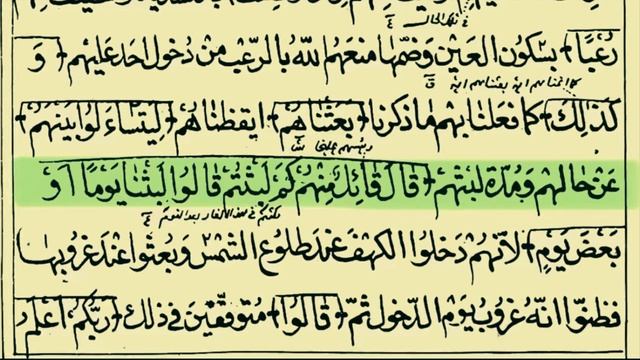 رُعْبًا﴾ بِسُكُونِ الْعَيْنِ وَضَمِّهَا مَنَعَهُمُ اللّٰهُ بِالرُّعْبِ مِنْ دُخُولِ اَحَدٍ عَلَيْهِمْ ﴿وَ
كَذٰلِكَ﴾ كَمَا فَعَلْنَا بِهِمْ مَا ذَكَرْنَا ﴿بَعَثْنٰهُمْ﴾ اَيْقَظْنَاهُمْ ﴿لِيَتَسَاءَلُوْا بَيْنَهُمْ﴾
عَنْ حَالِهِمْ وَمُدَّةِ لَبْثِهِمْ ﴿قَالَ قَائِلٌ مِّنْهُمْ كَمْ لَبِثْتُمْ قَالُوْا لَبِثْنَا يَوْمًا اَوْ
بَعْضَ يَوْمٍ﴾ لِاَنَّهُمْ دَخَلُوا الْكَهْفَ عِنْدَ طُلُوْعِ الشَّمْسِ وَبُعِثُوْا عِنْدَ غُرُوْبِهَا
فَظَنُّوْا اَنَّهُ غُرُوْبُ يَوْمِ الدُّخُوْلِ ثُمَّ ﴿قَالُوْا﴾ مُتَوَقِّفِيْنَ فِيْ ذٰلِكَ ﴿رَبُّكُمْ اَعْلَمُ